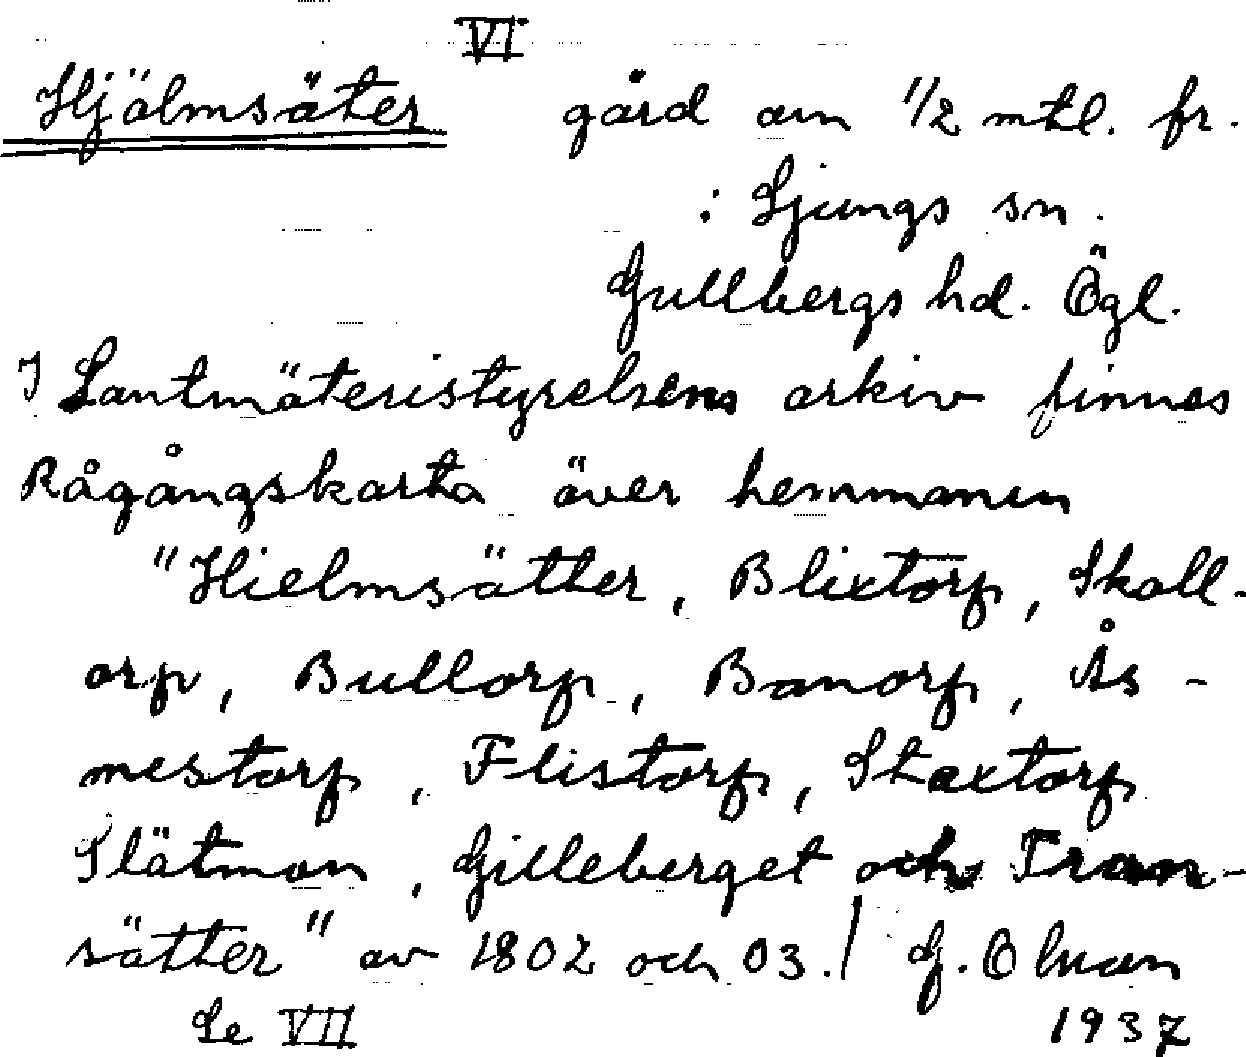 VI
Hjälmsäter gård om 1/2 mtl. fr.
i Ljungs sn.
Gullbergs hd. Ögl.
I Lantmäteristyrelsens arkiv finnes
Rågångskarta över hemmanen
"Hielmsätter, Blixtorp, Skall-
orp, Bullorp, Banorp, Ås-
mestorp, Flistorp, Staxtorp
Slätmon, Gilleberget och Tran-
sätter" av 1802 och 03./ G. Olson
Se VII 1937